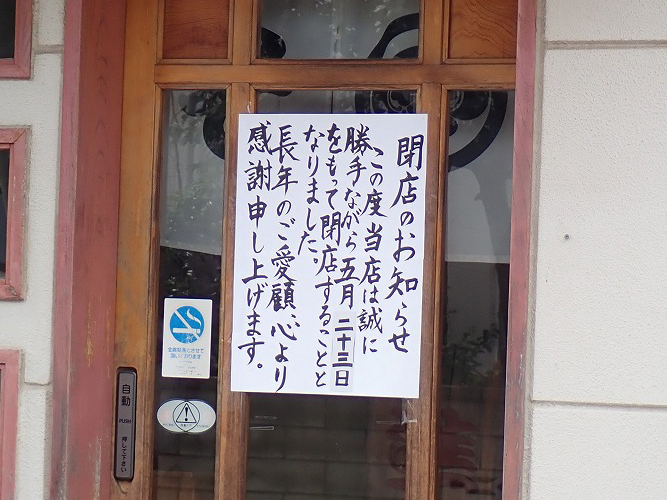 閉店のお知らせ
この度当店は誠に
勝手ながら五月二十三日
をもって閉店することと
なりました。
長年のご愛顧、心より
感謝申し上げます。
自動
PUSH
押して下さい